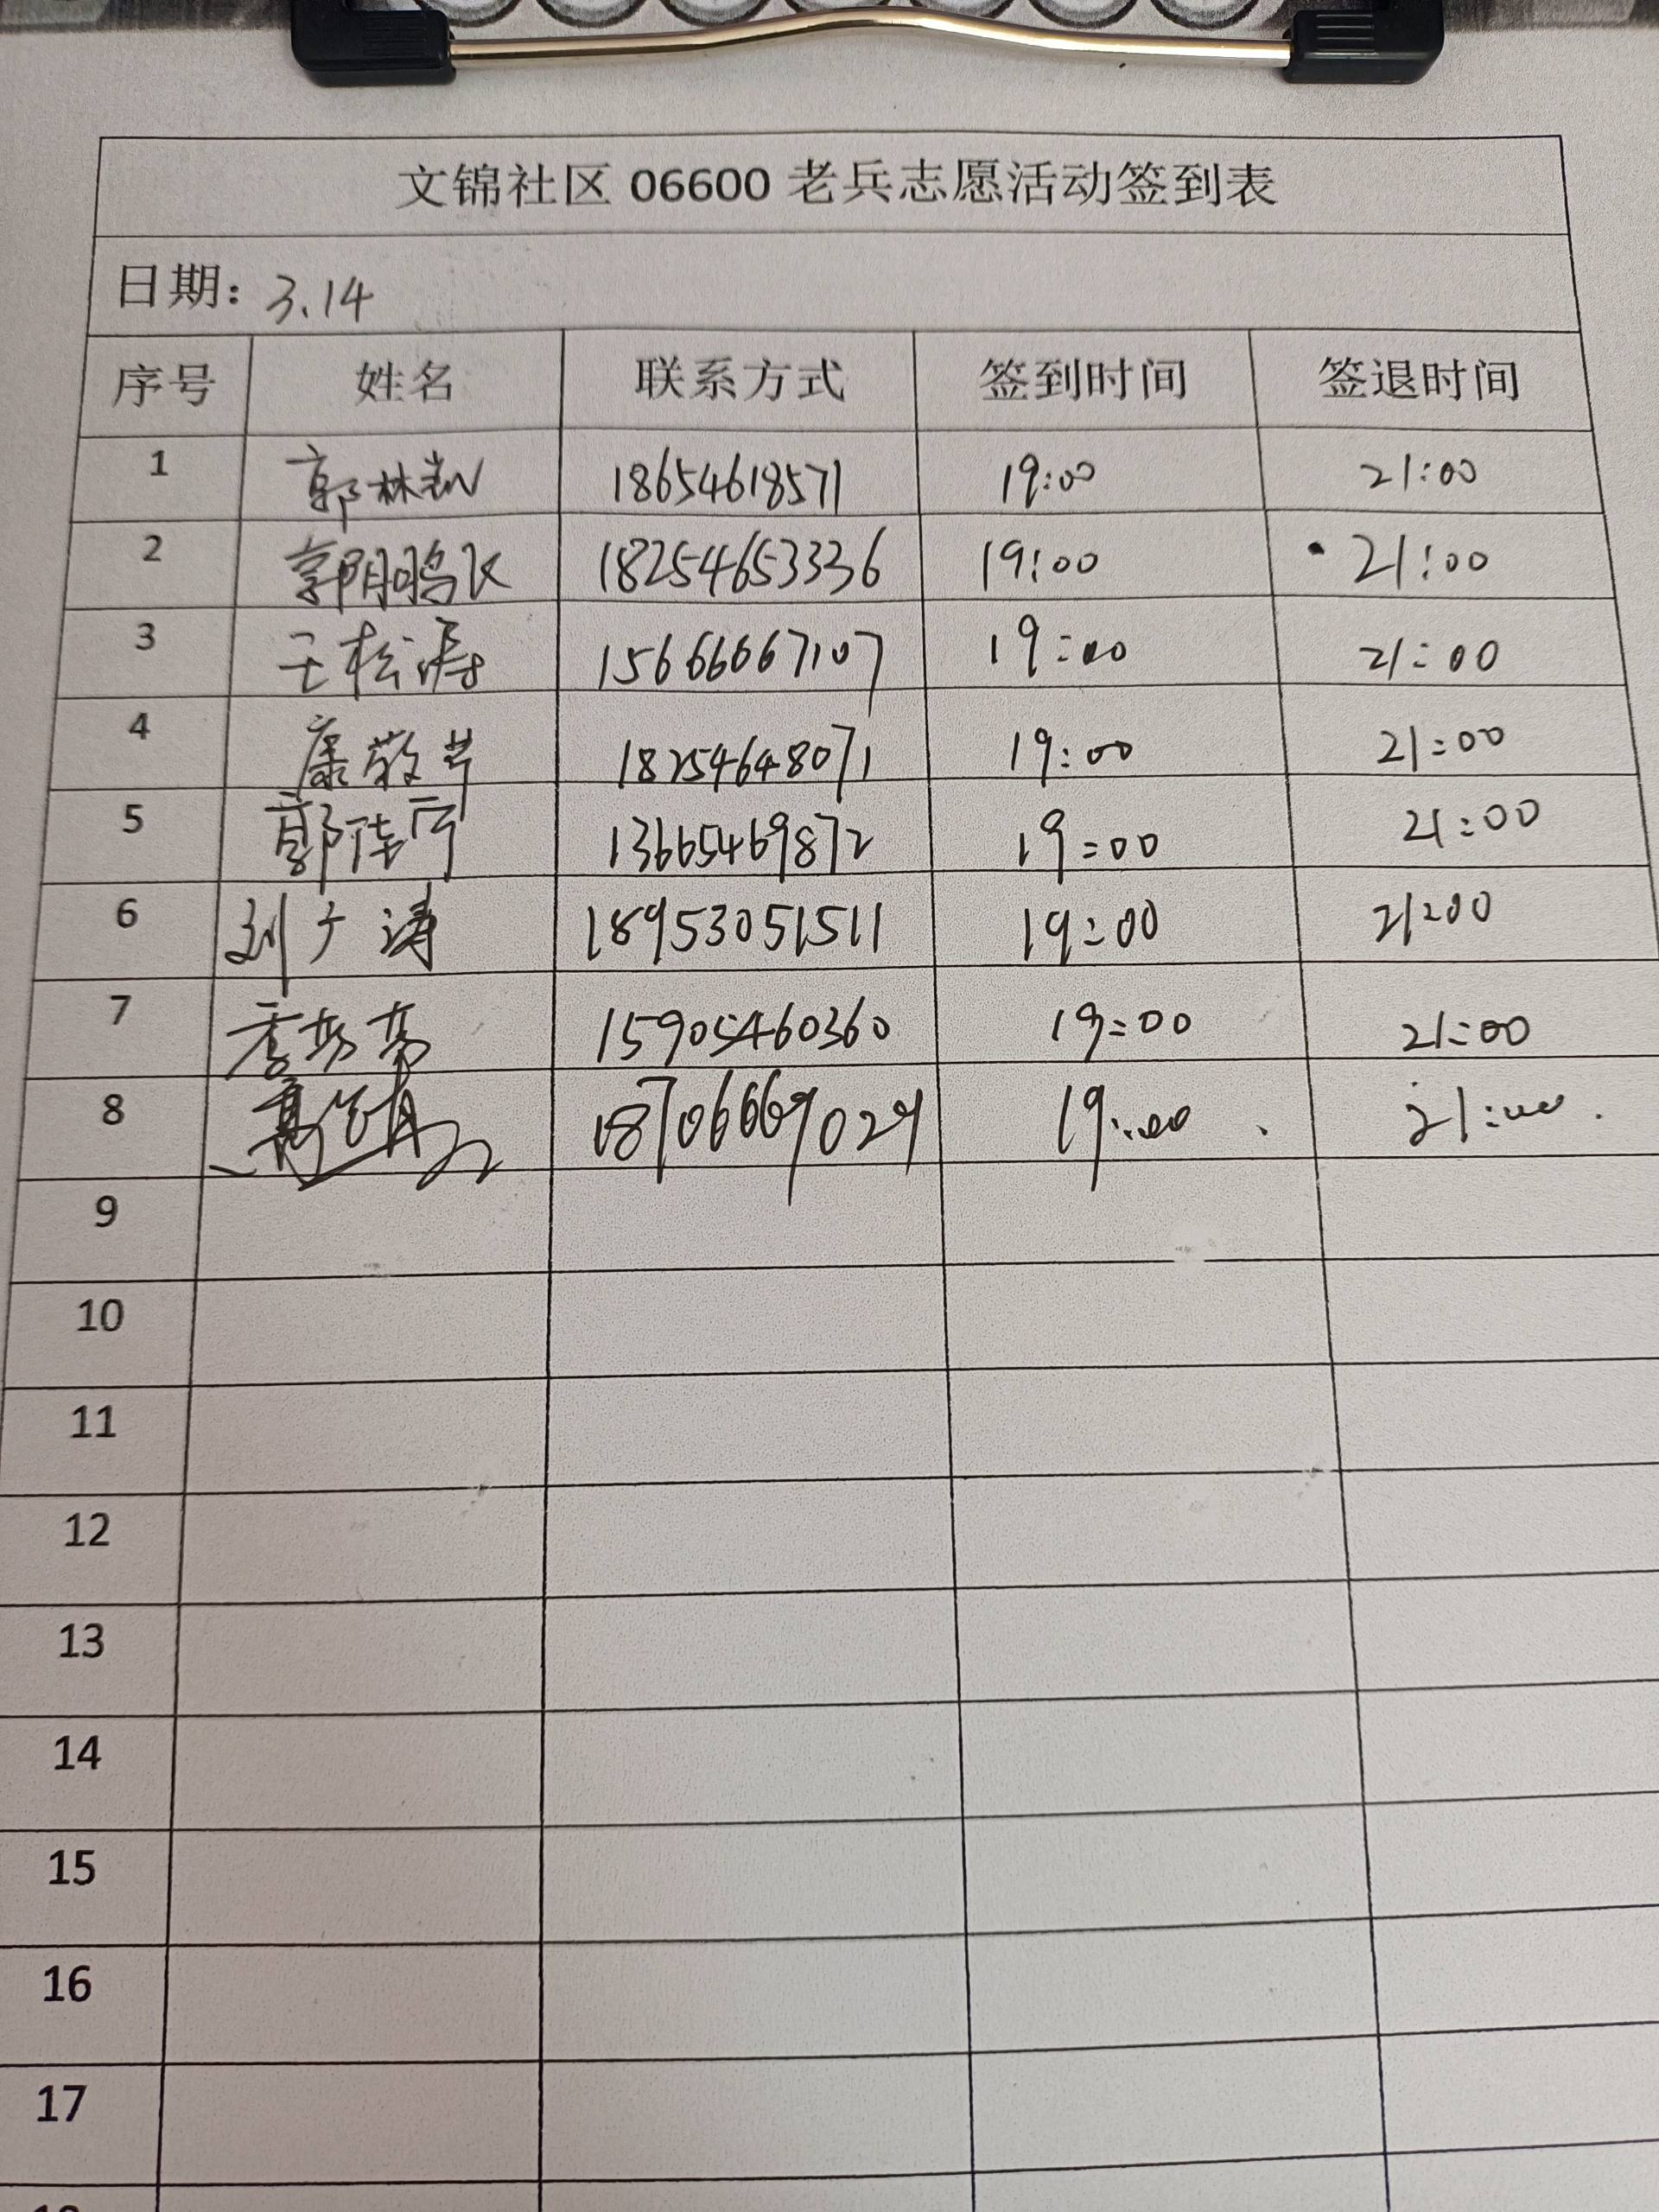 文锦社区 06600 老兵志愿活动签到表
日期: 3.14
序号 姓名 联系方式 签到时间 签退时间
1 郭林凯 18654618571 19:00 21:00
2 郭鹏飞 18254653336 19:00 21:00
3 王松涛 15666667107 19:00 21:00
4 康敬芹 18254648071 19:00 21:00
5 郭佳宁 13665469872 19:00 21:00
6 刘广涛 18953051511 19:00 21:00
7 15905460360 19:00 21:00
8 18706669029 19:00 21:00
9
10
11
12
13
14
15
16
17